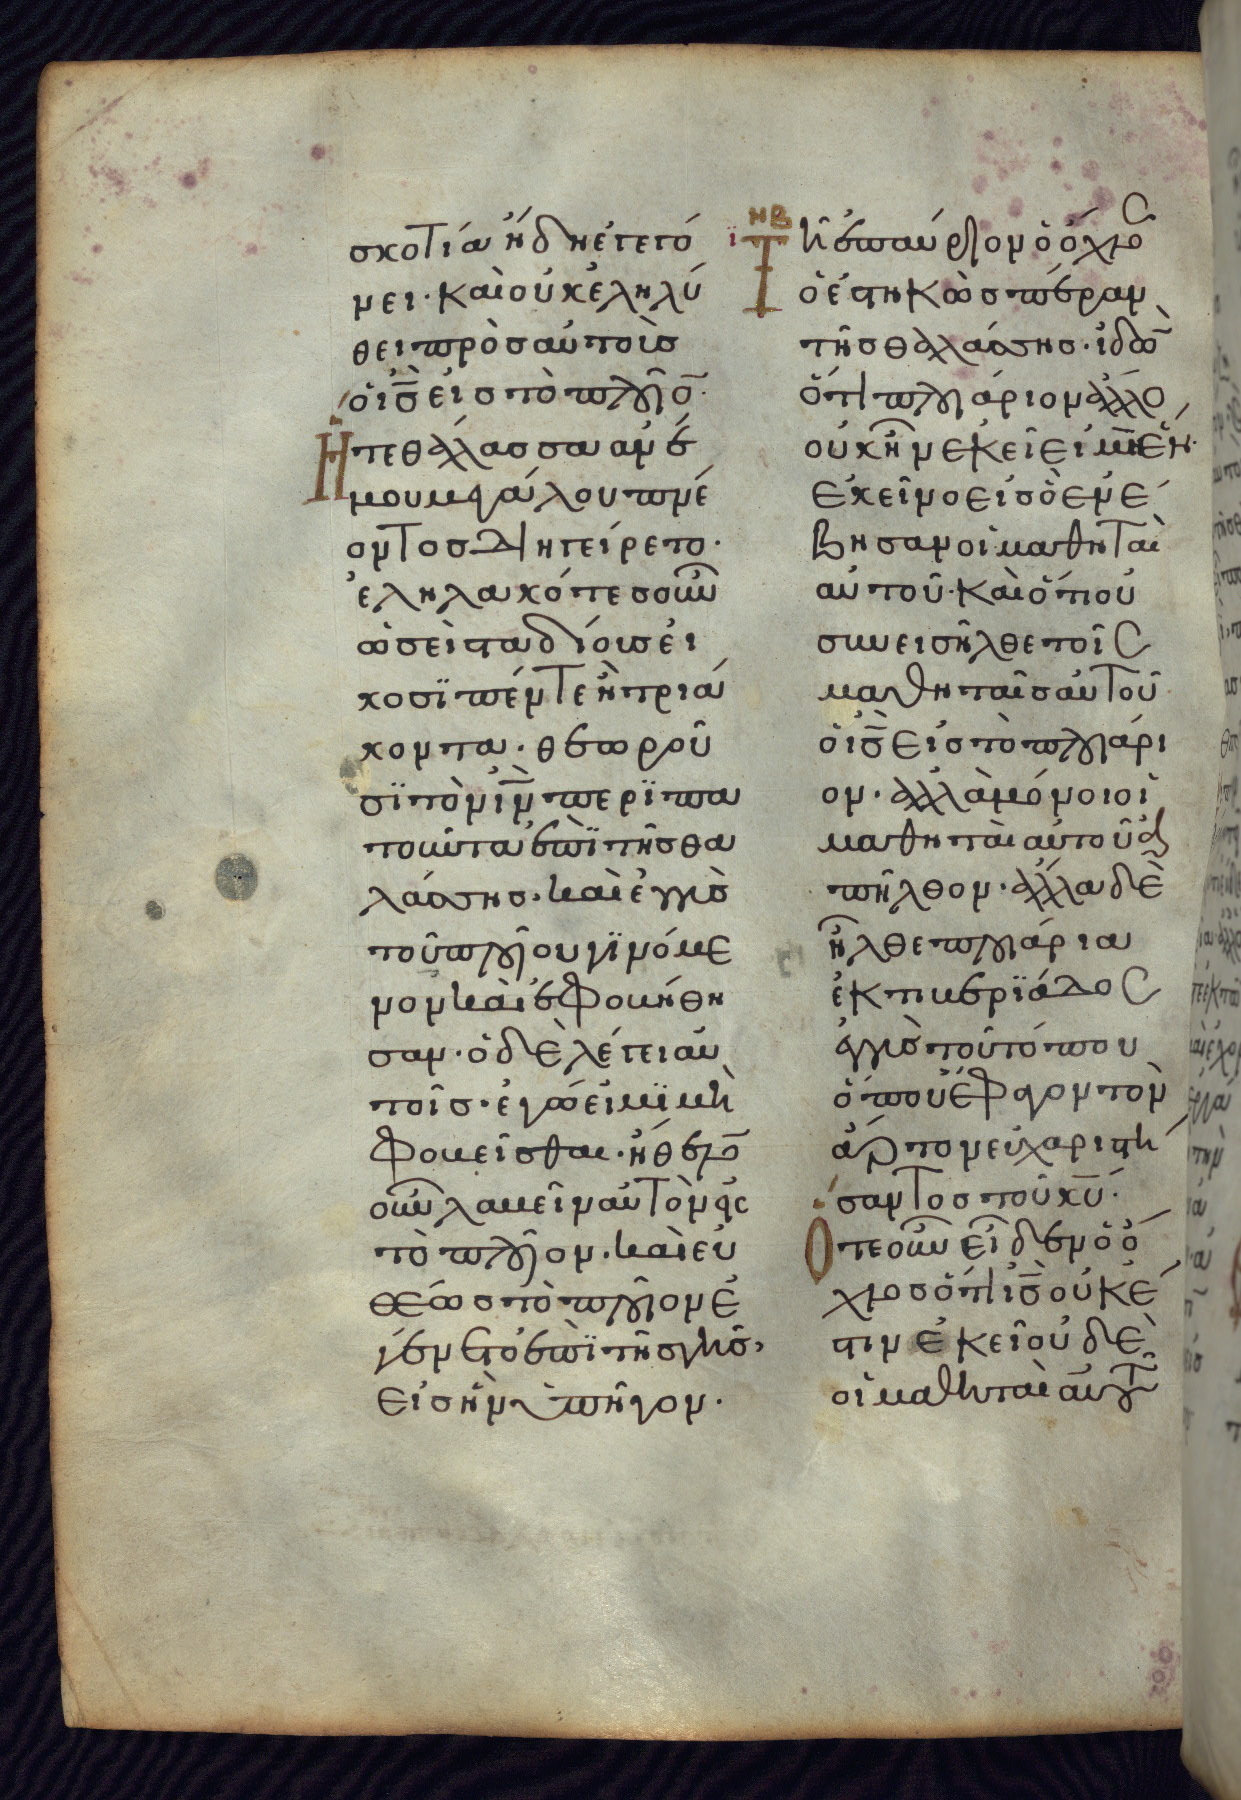 σκοτία ἤδη ἐγεγό
νει· καὶ οὐκ ἐληλύ
θει πρὸς αὐτοὺς
ὁ ι̅ς̅ εἰς τὸ πλοῖο̅·
Ἥ τε θάλασσα ἀνέ
μου μεγάλου πνέ
οντος διηγείρετο·
ἐληλακότες οὖν
ὡσεὶ σταδίους εἰ
κοσϊ πέντε ἢ τριά
κοντα· θεωροῦ
σϊ τὸν ι̅ν̅ περϊπα
τοῦντα ἐπῒ τῆς θα
λάσσης· καὶ ἐγγὺς
τοῦ πλοίου γϊνόμε
νον καὶ ἐφοβήθη
σαν· ὁ δὲ λέγει αὐ
τοῖς· ἐγώ εἰμϊ μὴ
φοβεῖσθαι· ἤθελο̅
οὖν λαβεῖν αὐτὸν εἰς
τὸ πλοῖον· καὶ εὐ
θέως τὸ πλοῖον ἐ
γένετο ἐπῒ τῆς γῆς,
εἰς ἣν ὑπῆγον·
Τῇ ἐπαύριον ὁ ὄχλος
ὁ ἑστηκὼς πέραν
τῆς θαλάσσης· ἰδὼ̅
ὅτι πλοιάριον ἄλλο
οὐκ ἦν ἐκεῖ εἰ μὴ ἓν·
ἐκεῖνο εἰς ὃ ἐνέ
βησαν οἱ μαθηταὶ
αὐτοῦ· καὶ ὅτι οὐ
συνεισῆλθε τοῖς
μαθηταῖς αὐτοῦ
ὁ ι̅ς̅ εἰς τὸ πλοιάρι
ον· ἀλλὰ μόνοι οἱ
μαθηταὶ αὐτοῦ ἀ
πῆλθον· ἄλλα δὲ
ἦλθε πλοιάρια
ἐκ τιβερϊάδος
ἐγγὺς τοῦ τόπου
ὅπου ἔφαγον τὸν
ἄρτον εὐχαριστή
σαντος τοῦ κ̅υ̅·
Ὅτε οὖν εἶδεν ὁ ὄ
χλος ὅτι ι̅ς̅ οὐκ ἔ
στιν ἐκεῖ οὐδὲ
οἱ μαθηταὶ αὐτοῦ